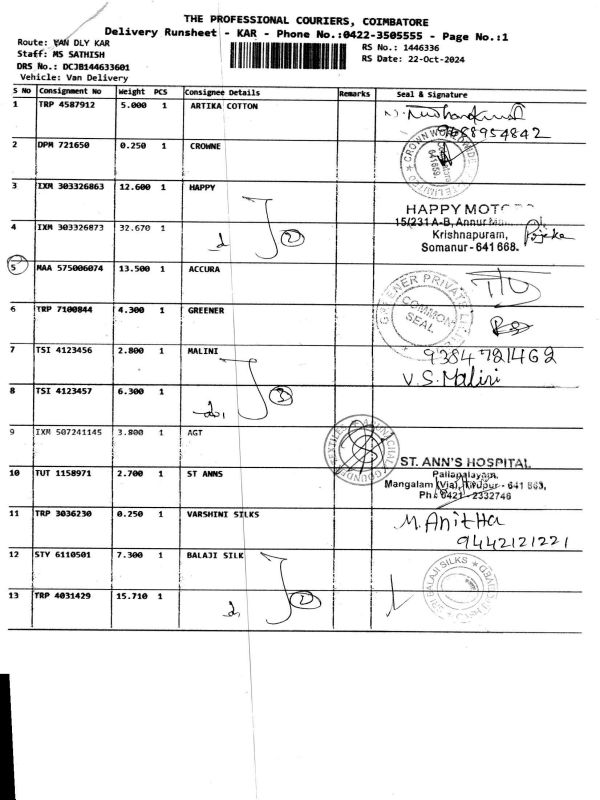 THE PROFESSIONAL COURIERS, COIMBATORE
Delivery Runsheet - KAR - Phone No.:0422-3505555 - Page No.:1
Route: VAN DLY KAR
RS No.: 1446336
Staff: MS SATHISH
RS Date: 22-Oct-2024
DRS No.: DCJB144633601
Vehicle: Van Delivery
S No Consignment No Weight PCS Consignee Details Remarks Seal & Signature
1 TRP 4587912 5.000 1 ARTIKA COTTON
9688954842
2 DPM 721650 0.250 1 CROWNE
CROWN WORLDWIDE
641659
3 IXM 303326863 12.600 1 HAPPY
HAPPY
15/231 A-B, Annur
Krishnapuram,
Somanur - 641 668.
Pojeka
4 IXM 303326873 32.670 1
2
5 MAA 575006074 13.500 1 ACCURA
6 TRP 7100844 4.300 1 GREENER
GREENER PRIVATE
COMMON
SEAL
7 TSI 4123456 2.800 1 MALINI
9384721462
V.S. Malini
8 TSI 4123457 6.300 1
3
9 IXM 507241145 3.800 1 AGT
10 TUT 1158971 2.700 1 ST ANNS
ST. ANN'S HOSPITAL
Pallapalayam,
Mangalam (Via), Tirupur - 641 663,
Ph: 0421 - 2332746
11 TRP 3036230 0.250 1 VARSHINI SILKS
M. Anitha
9442121221
12 STY 6110501 7.300 1 BALAJI SILK
BALAJI SILKS
13 TRP 4031429 15.710 1
2